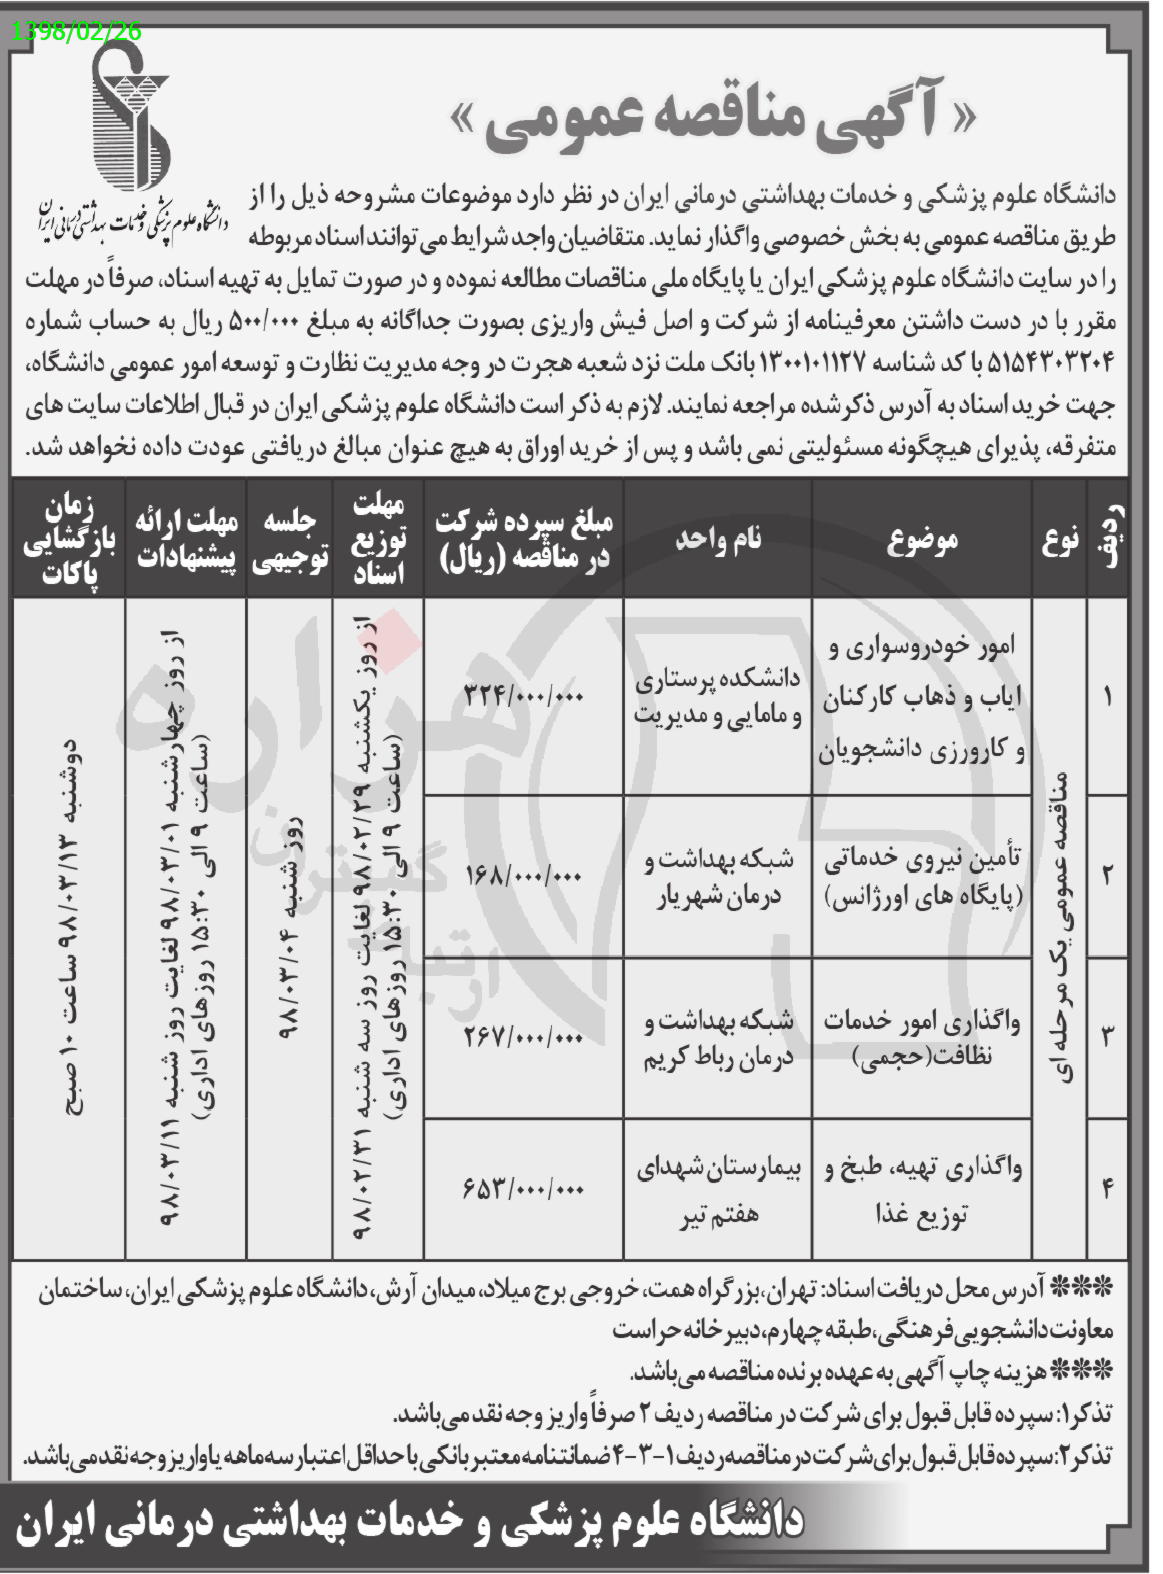 1398/02/26
« آگهی مناقصه عمومی »
دانشگاه علوم پزشکی و خدمات بهداشتی درمانی ایران
دانشگاه علوم پزشکی و خدمات بهداشتی درمانی ایران در نظر دارد موضوعات مشروحه ذیل را از
طریق مناقصه عمومی به بخش خصوصی واگذار نماید. متقاضیان واجد شرایط می توانند اسناد مربوطه
را در سایت دانشگاه علوم پزشکی ایران یا پایگاه ملی مناقصات مطالعه نموده و در صورت تمایل به تهیه اسناد، صرفاً در مهلت
مقرر با در دست داشتن معرفینامه از شرکت و اصل فیش واریزی بصورت جداگانه به مبلغ ۵۰۰/۰۰۰ ریال به حساب شماره
۵۱۵۴۳۰۳۲۰۴ با کد شناسه ۱۳۰۰۱۰۱۱۲۷ بانک ملت نزد شعبه هجرت در وجه مدیریت نظارت و توسعه امور عمومی دانشگاه،
جهت خرید اسناد به آدرس ذکرشده مراجعه نمایند. لازم به ذکر است دانشگاه علوم پزشکی ایران در قبال اطلاعات سایت های
متفرقه، پذیرای هیچگونه مسئولیتی نمی باشد و پس از خرید اوراق به هیچ عنوان مبالغ دریافتی عودت داده نخواهد شد.
ردیف
نوع
موضوع
نام واحد
مبلغ سپرده شرکت
در مناقصه (ریال)
مهلت
توزیع
اسناد
جلسه
توجیهی
مهلت ارائه
پیشنهادات
زمان
بازگشایی
پاکات
۱
مناقصه عمومی یک مرحله ای
امور خودروسواری و
ایاب و ذهاب کارکنان
و کارورزی دانشجویان
دانشکده پرستاری
و مامایی و مدیریت
۳۲۴/۰۰۰/۰۰۰
از روز یکشنبه ۹۸/۰۲/۲۹ لغایت روز سه شنبه ۹۸/۰۲/۳۱
(ساعت ۹ الی ۱۵:۳۰ روزهای اداری)
روز شنبه ۹۸/۰۳/۰۴
از روز چهارشنبه ۹۸/۰۳/۰۱ لغایت روز شنبه ۹۸/۰۳/۱۱
(ساعت ۹ الی ۱۵:۳۰ روزهای اداری)
دوشنبه ۹۸/۰۳/۱۳ ساعت ۱۰ صبح
۲
تأمین نیروی خدماتی
(پایگاه های اورژانس)
شبکه بهداشت و
درمان شهریار
۱۶۸/۰۰۰/۰۰۰
۳
واگذاری امور خدمات
نظافت(حجمی)
شبکه بهداشت و
درمان رباط کریم
۲۶۷/۰۰۰/۰۰۰
۴
واگذاری تهیه، طبخ و
توزیع غذا
بیمارستان شهدای
هفتم تیر
۶۵۳/۰۰۰/۰۰۰
هزاره
گستران
ارتباط
*** آدرس محل دریافت اسناد: تهران،بزرگراه همت، خروجی برج میلاد، میدان آرش، دانشگاه علوم پزشکی ایران، ساختمان
معاونت دانشجویی فرهنگی،طبقه چهارم،دبیرخانه حراست
*** هزینه چاپ آگهی به عهده برنده مناقصه می باشد.
تذکر۱: سپرده قابل قبول برای شرکت در مناقصه ردیف ۲ صرفاً واریز وجه نقد می باشد.
تذکر۲: سپرده قابل قبول برای شرکت در مناقصه ردیف ۱-۳-۴ ضمانتنامه معتبر بانکی با حداقل اعتبار سه ماهه یا واریز وجه نقد می باشد.
دانشگاه علوم پزشکی و خدمات بهداشتی درمانی ایران